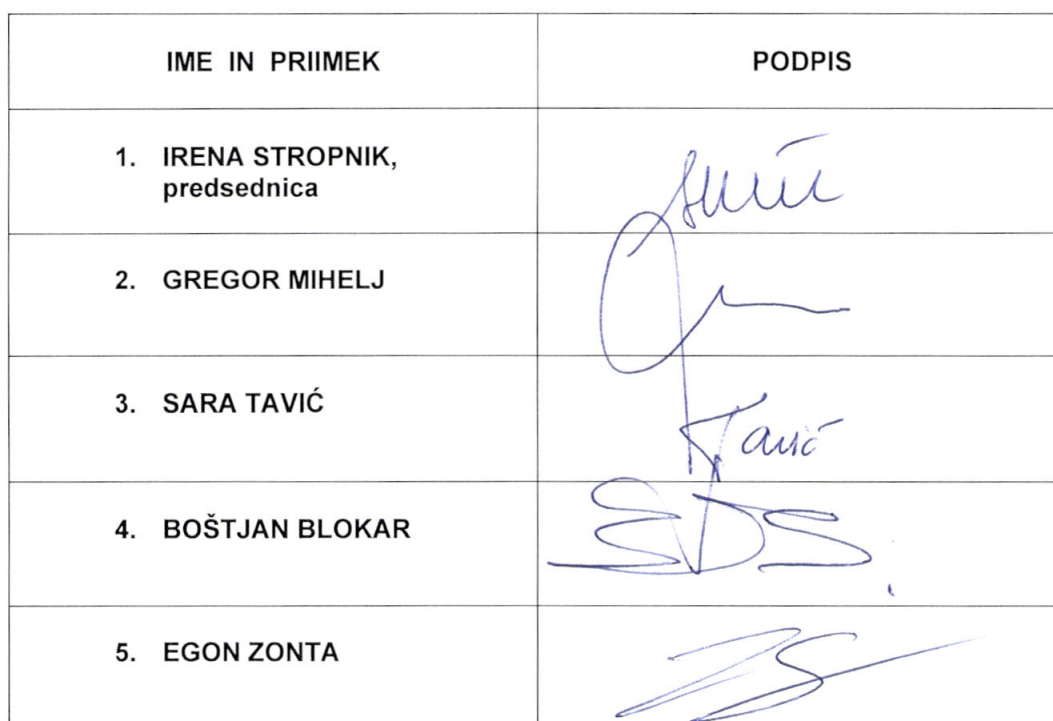 IME IN PRIIMEK PODPIS
1. IRENA STROPNIK,
predsednica
2. GREGOR MIHELJ
3. SARA TAVIĆ
Tavić
4. BOŠTJAN BLOKAR
5. EGON ZONTA